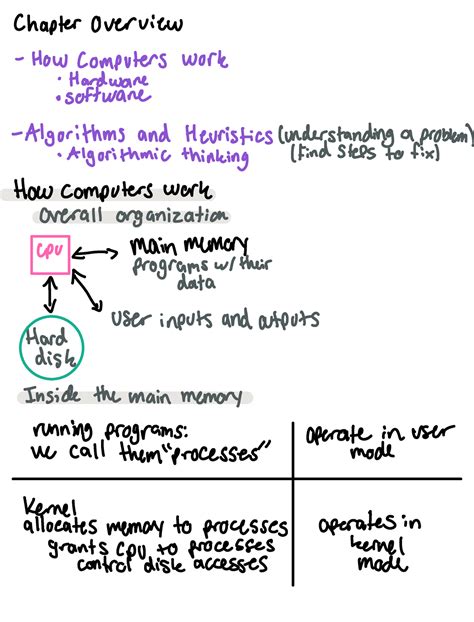 Chapter Overview
- How Computers work
• Hardware
• software
- Algorithms and Heuristics (understanding a problem)
• Algorithmic thinking (find steps to fix)
How Computers work
Overall organization
CPU
main memory
programs w/ their
data
user inputs and outputs
Hard
disk
Inside the main memory
running programs:
we call them "processes"
operate in user
mode
Kernel
allocates memory to processes
grants CPU to processes
control disk accesses
operates in
kernel
mode